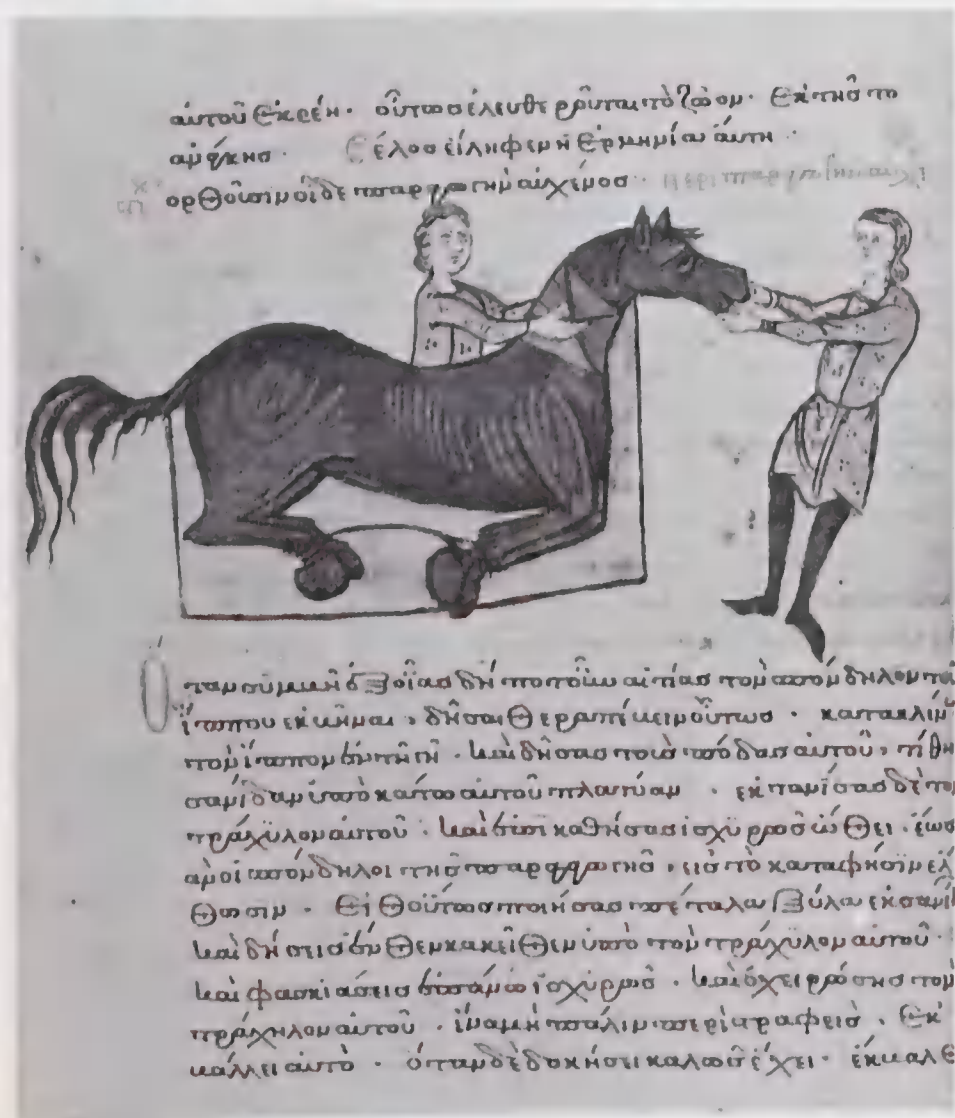 αὐτοῦ ἐκρέη · οὕτωσ ἐλευθερροῦται τὸ ζῶον · ἐκ τῆσ το
τέλοσ εἴληφεν ἡ ἑρμηνία αὕτη ·
ὀρθοῦσιν οἵδε παραγωγὴν αὐχένοσ ·
ὅταν συμβῆ ἐξ οἵασ δή ποτοῦν αἰτίασ τὸν σπόνδηλον τοῦ
ἵππου · οὕτωσ · κατακλίν
τὸν ἵππον ἐν τῆ γῆ · καὶ δήσασ τοὺσ πόδασ αὐτοῦ, τίθη
σανίδαν ὑποκάτω αὐτοῦ πλατύαν · ἐκτανίσασ δὲ τὸν
τράχυλον αὐτοῦ · καὶ ἐπικαθήσασ ἰσχυρρῶσ ὤθει · ἕωσ
ἀν οἱ σπόνδηλοι τῆσ παραγωγῆσ, εἰσ τὸ κατα φήσϊν ἐλ
θωσιν · Εἶθ οὕτωσ ποιήσασ πέταλα ξύλα ἐκ σανίδ
καὶ δήσεισ ἔνθεν κακεῖθεν ὑπὸ τὸν τράχυλον αὐτοῦ ·
καὶ φασκιάσεισ ἐπάνω ἰσχύρωσ · καὶ τὸν
τράχηλον αὐτοῦ · ἵνα μὴ πάλιν περιτραφεὶσ · Ἐκ
κάλλει αὐτὸ · ὅταν δὲ δοκήσει καλῶσ ἔχει ·